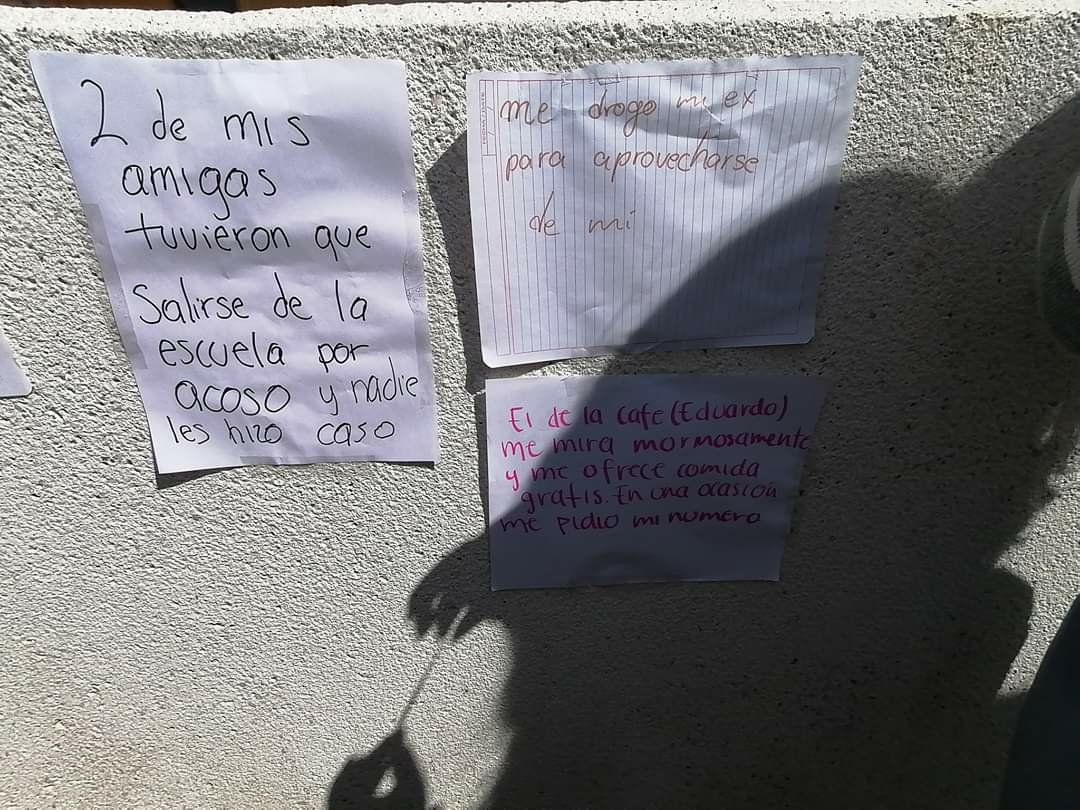 2 de mis
amigas
tuvieron que
Salirse de la
escuela por
acoso y nadie
les hizo caso
me drogo mi ex
para aprovecharse
de mi
El de la cafe (Eduardo)
me mira mormosamente
y me ofrece comida
gratis. En una ocasión
me pidio mi numero